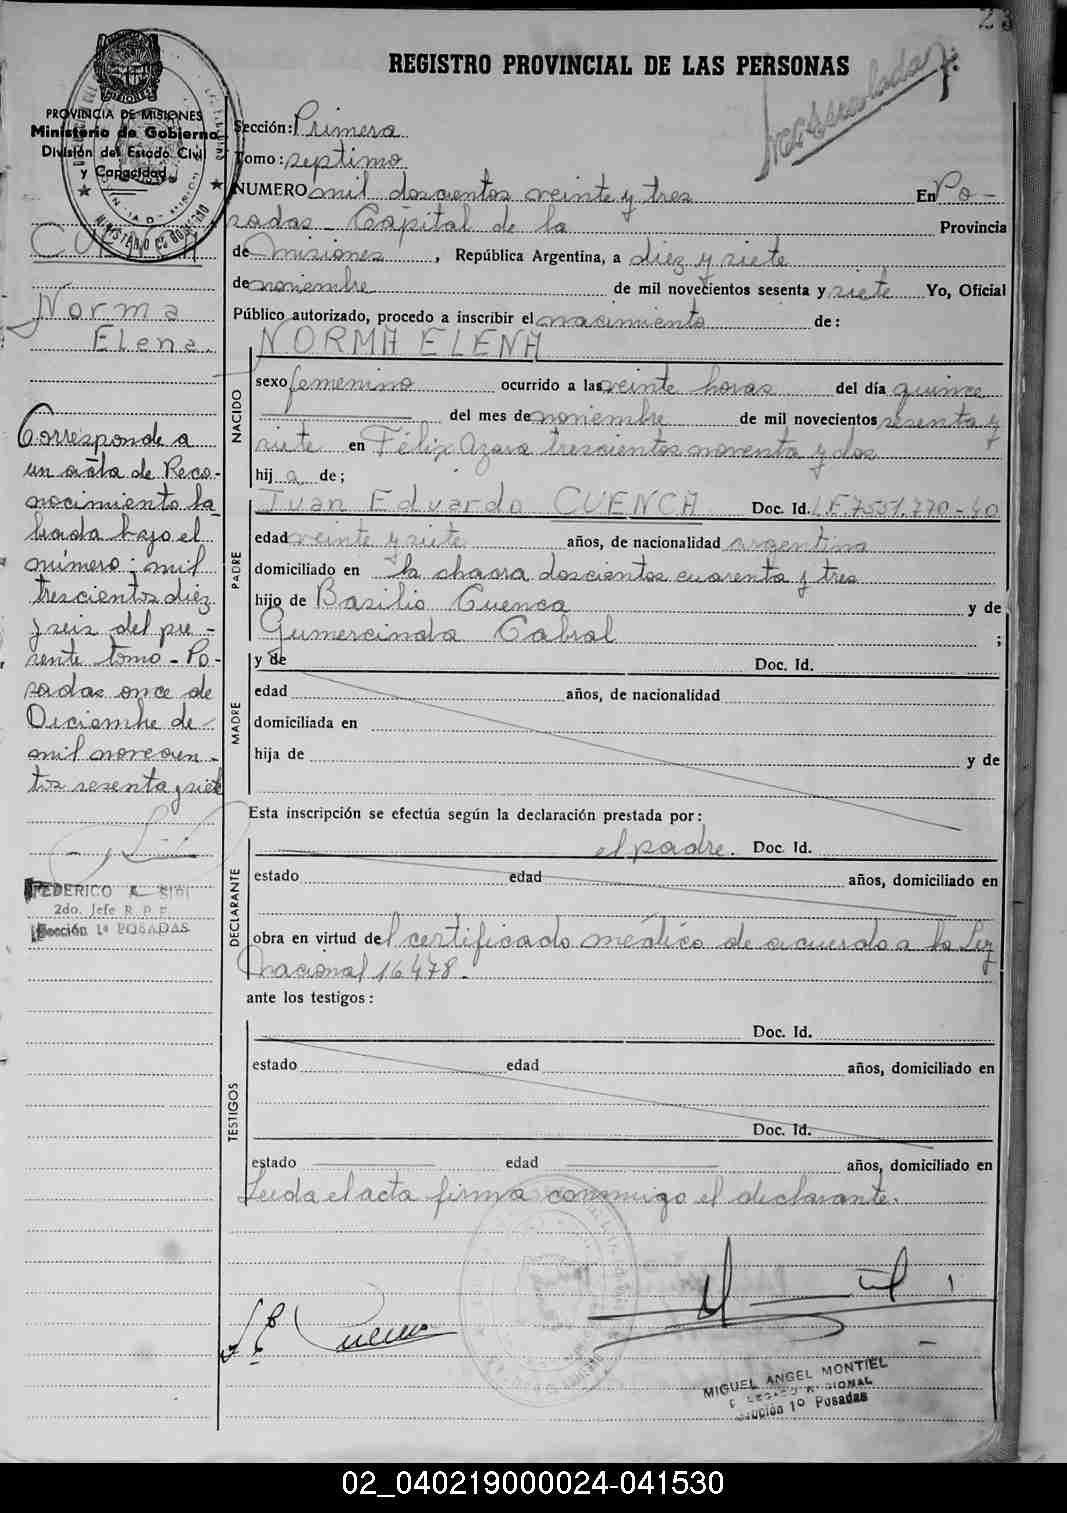 REGISTRO PROVINCIAL DE LAS PERSONAS
PROVINCIA DE MISIONES
Ministerio de Gobierno
División del Estado Civil
y Capacidad
MINISTERIO DE GOBIERNO
CUENCA
Norma
Elena.
Corresponde a
un acta de Reco-
nocimiento la
brada bajo el
número: mil
trescientos diez
y seis del pre-
sente tomo - Po-
sadas once de
Diciembre de
mil novecien-
tos sesenta y siete
FEDERICO A. SIDI
2do. Jefe R. P. P.
Sección 1ª POSADAS
Sección: Primera
Tomo: septimo
NUMERO mil doscientos veinte y tres En Po-
sadas - Capital de la Provincia
de Misiones, República Argentina, a diez y siete
de noviembre de mil novecientos sesenta y siete Yo, Oficial
Público autorizado, procedo a inscribir el nacimiento de:
NORMA ELENA
NACIDO
sexo femenino ocurrido a las veinte horas del día quince
del mes de noviembre de mil novecientos sesenta y
siete en Félix Azara trescientos noventa y dos
hij a de;
PADRE
Juan Eduardo CUENCA Doc. Id. L.E. 7551.770-40
edad veinte y siete años, de nacionalidad argentina
domiciliado en la chacra doscientos cuarenta y tres
hijo de Basilio Cuenca y de
Gumercinda Cabral ;
MADRE
y de Doc. Id.
edad años, de nacionalidad
domiciliada en
hija de y de
Esta inscripción se efectúa según la declaración prestada por:
DECLARANTE
el padre. Doc. Id.
estado edad años, domiciliado en
obra en virtud del certificado médico de acuerdo a la Ley
Nacional 16478.
ante los testigos:
TESTIGOS
Doc. Id.
estado edad años, domiciliado en
Doc. Id.
estado edad años, domiciliado en
Leida el acta firma conmigo el declarante.
J. E. Cuenca
MIGUEL ANGEL MONTIEL
Sección 1º Posadas
02_040219000024-041530